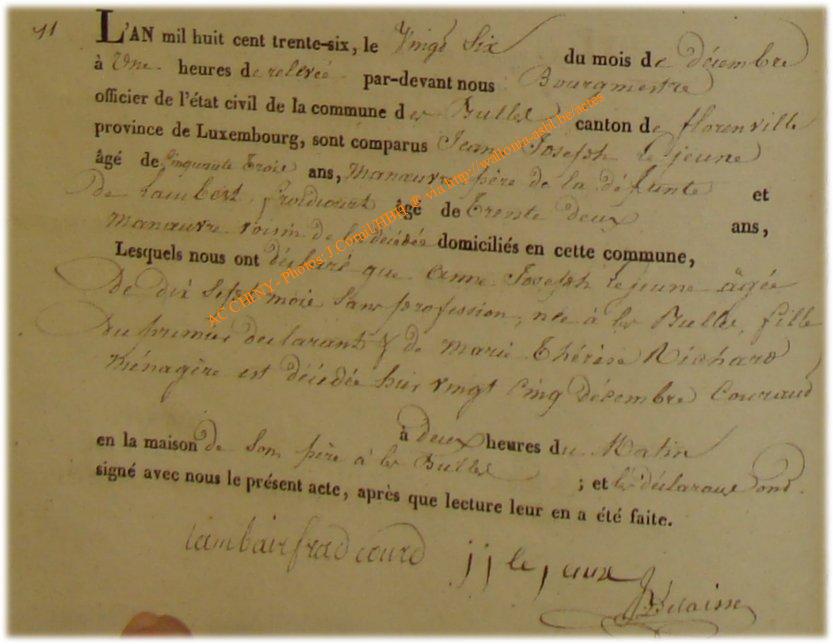 11
L'AN mil huit cent trente-six, le Vingt Six du mois de décembre
à Une heures de relevée par-devant nous Bourgmestre
officier de l'état civil de la commune de les Bulles canton de florenville
province de Luxembourg, sont comparus Jean Joseph lejeune
âgé de Cinquante Trois ans, manœuvre père de la défunte et
De Lambert froidcourt âgé de Trente deux ans,
manœuvre voisin de la décédée domiciliés en cette commune,
Lesquels nous ont déclaré que Anne Joseph lejeune âgée
De dix Sept mois Sans profession, née à les Bulles, fille
Du premier declarant & de marie Thérèse Richard
ménagère est décédée hier vingt Cinq Décembre Courand
à deux heures du Matin
en la maison de Son père à les Bulles ; et les déclarans ont
signé avec nous le présent acte, après que lecture leur en a été faite.
Lambair fradcourd jj le jeune
AC CHINY - Photos J.Cornil, via http://wallonia-asbl.be/actes